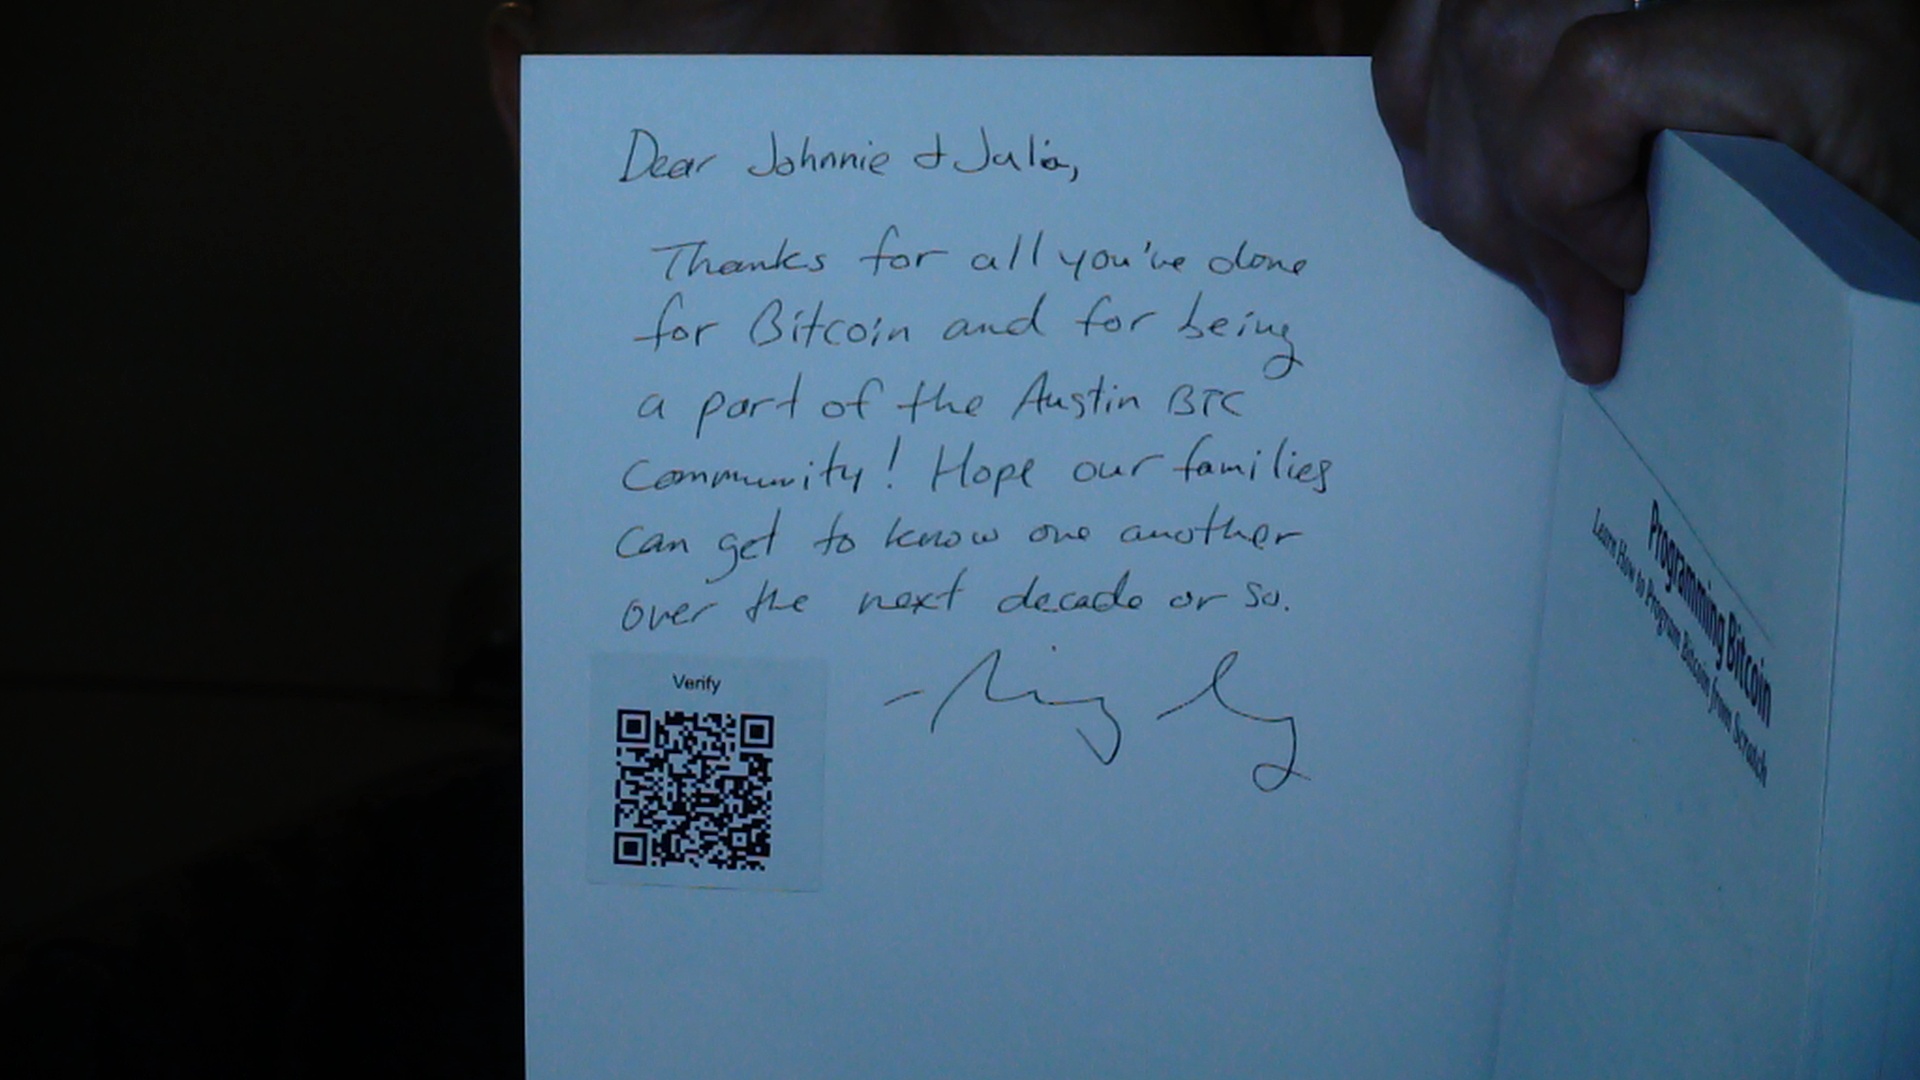 Dear Johnnie & Julia,
Thanks for all you've done
for Bitcoin and for being
a part of the Austin BTC
Community! Hope our families
can get to know one another
over the next decade or so.
Verify
Programming Bitcoin
Learn How to Program Bitcoin from Scratch